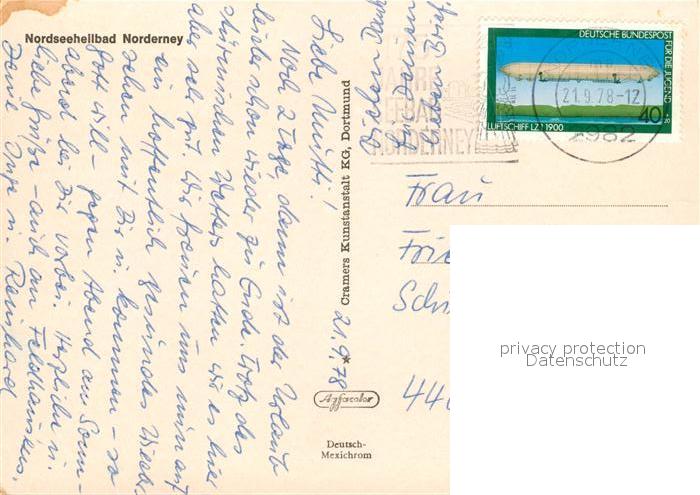 Nordseeheilbad Norderney
21.9.78
Liebe Mutti!
Noch 2 Tage, dann ist der Urlaub
leider schon wieder zu Ende. Trotz des
stürmischen Wetters hatten wir es hier
aber sehr gut. Wir freuen uns nun auf
ein hoffentlich gesundes Wieder-
sehen mit Dir u. kommen – so
Gott will – gegen Abend am Sonn-
abend bei Dir vorbei. Herzliche u.
liebe Grüße – auch an Feldhausens.
Deine Inge u. Reinhard
Cramers Kunstanstalt KG, Dortmund
Agfacolor
Deutsch-
Mexichrom
JAHRE
SEEBAD
NORDERNEY
DEUTSCHE BUNDESPOST
FÜR DIE JUGEND
LUFTSCHIFF LZ 1 1900
40 +20
21.9.78-12
2982
Frau
Frie
Sch
44
privacy protection
Datenschutz